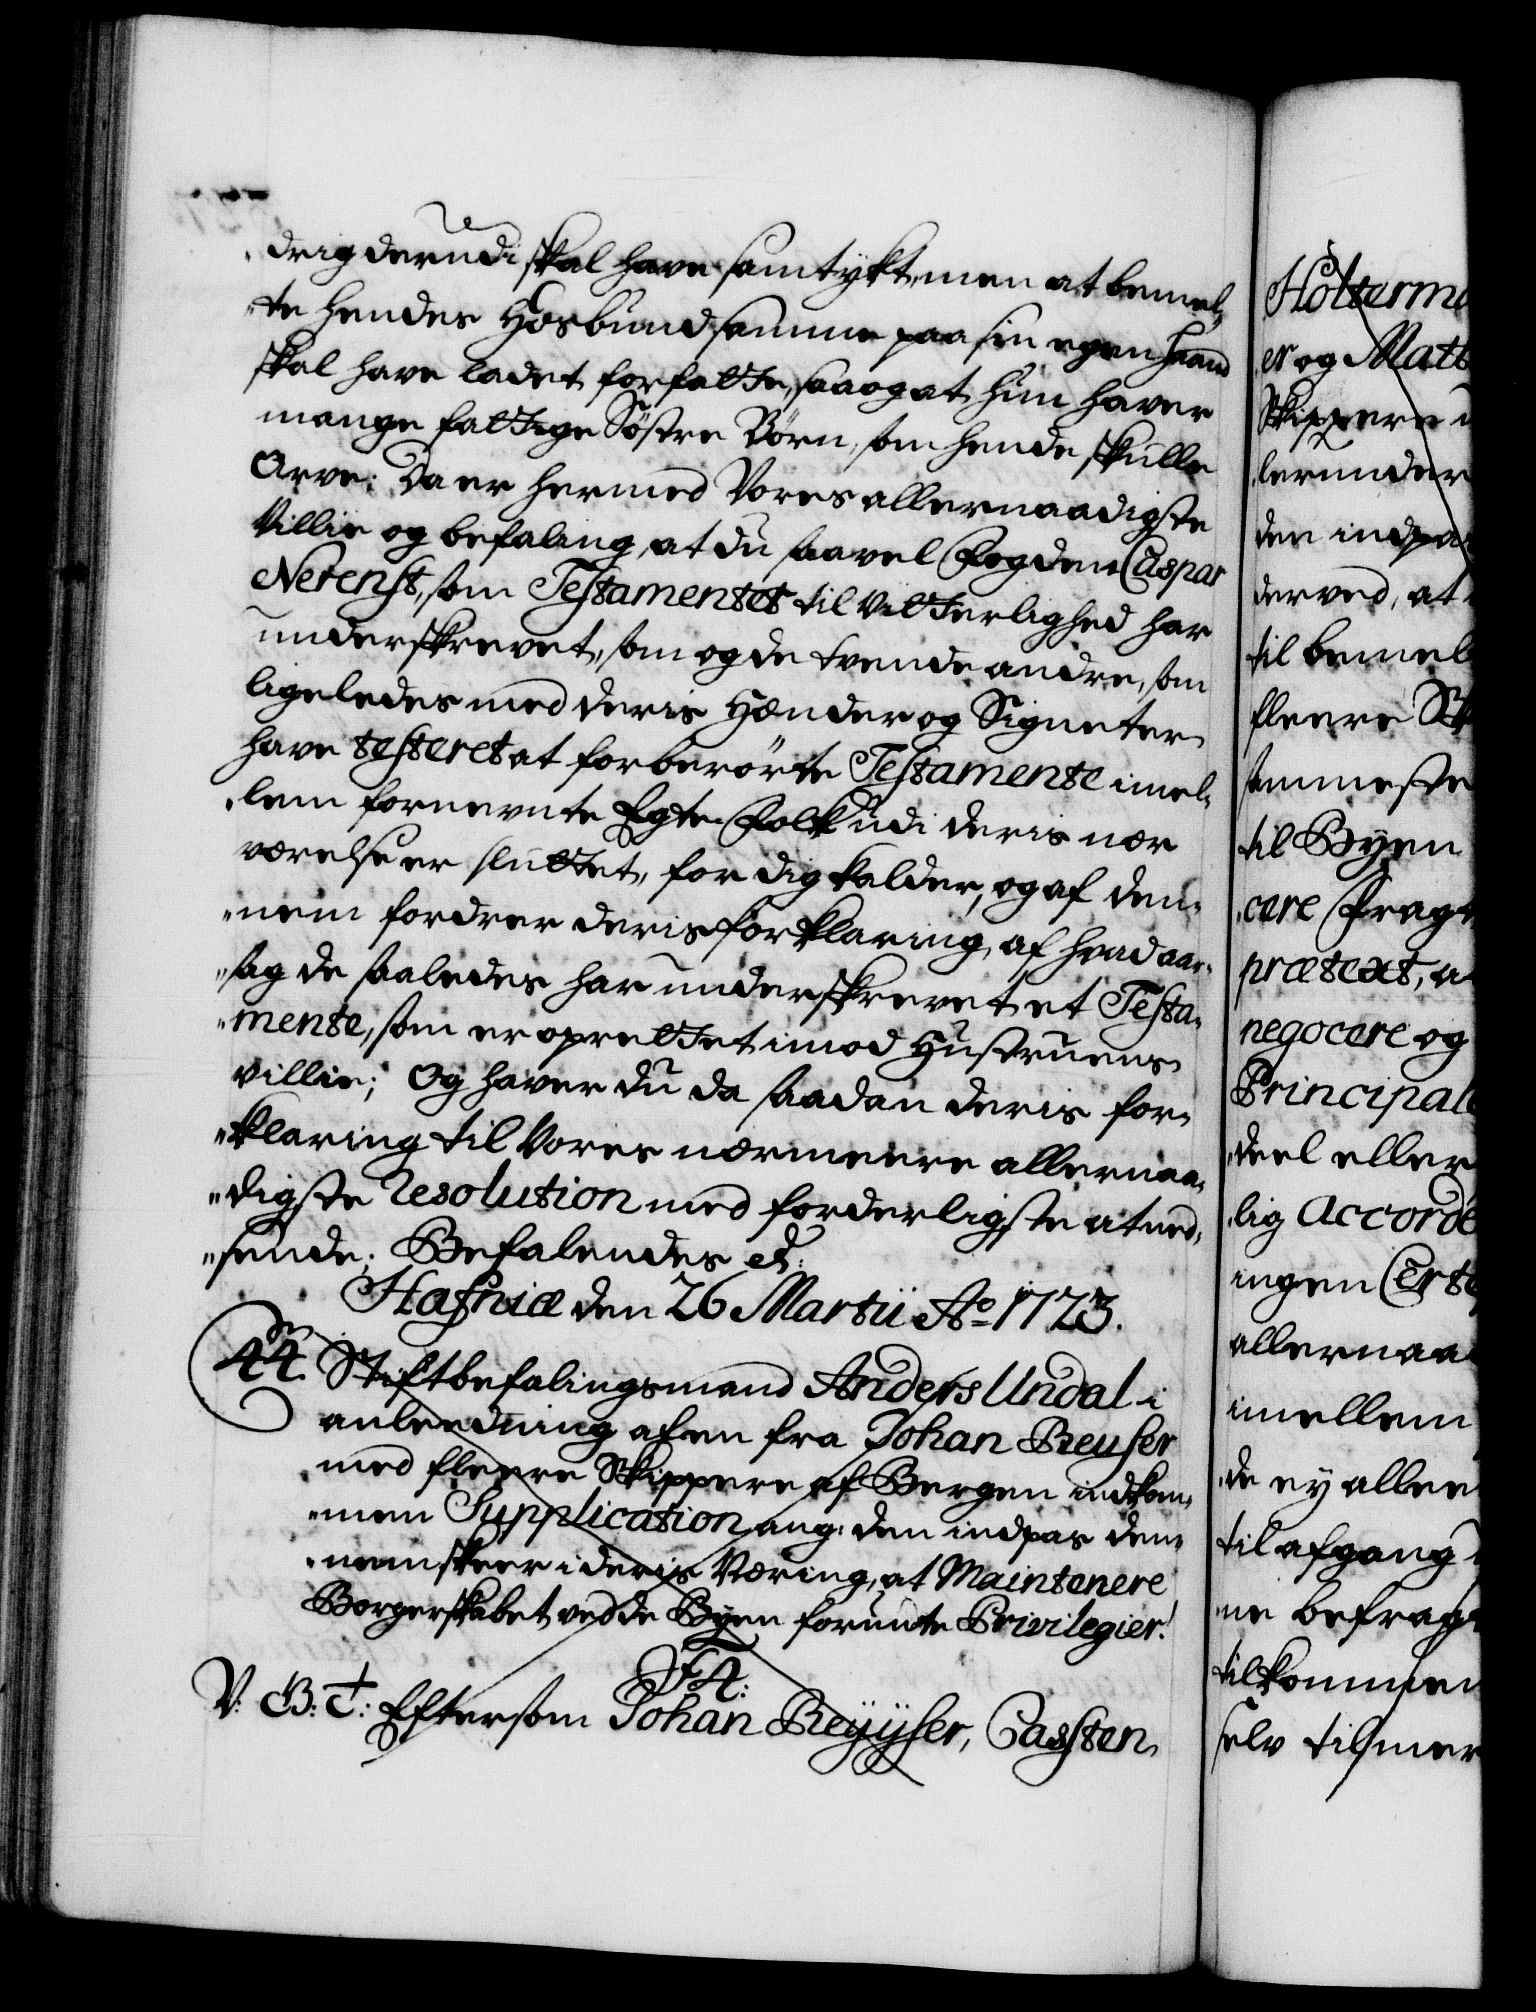 drig derudi skal have samtykt, men at bemel„
„te hendes Hosbund samme paa sin egen Haand
skal have ladet forfatte, saa og at hun haver
mange fattige Søstre Børn, som hende skulle
Arve; Da er hermed Vores allernaadigste
Villie og befaling, at du saavel Fogden Caspar
Nerenst, som Testamentet til Vitterlighed har
underskrevet, som og de tvende andre, som
ligeledes med deris Hænder og Signeter
have testeret at forberørte Testamente imel„
„lem fornevnte Egte-Folk udi deris nær
værelse er sluttet, for dig kalder, og af den„
„nem fordrer deris forklaring, af hvad aar„
„sag de saaledes har underskrevet et Testa„
„mente, som er oprettet imod Hustruens
villie; Og haver du da saadan deris for„
„klaring til Vores nærmeere allernaa„
„digste Resolution med forderligste at ned„
„sende; Befalendes etc:
Hafniæ den 26 Martii Ao 1723.
44. Stiftbefalingsmand Anders Undal i
anledning af en fra Johan Reuser
med fleere Skippere af Bergen indkom„
„men Supplication ang: den indpas den„
„nem skeer i deris Næring, at Maintenere
Borgerskabet ved de Byen forundte Privilegier.
F 4:
V: G: T: Eftersom Johan Reyser, Cassten
Holterma
er og Matt
Skippere u
lerunder
den indpa
derved, at
til bemel
fleere Sk
sammeste
til Byen
cere Fragt
prætext, a
negocere og
Principale
deel eller
lig Accorde
ingen Certe
allernaa
imellem
de ey allee
til afgang
ne befragt
tilkommen
selv tilmer